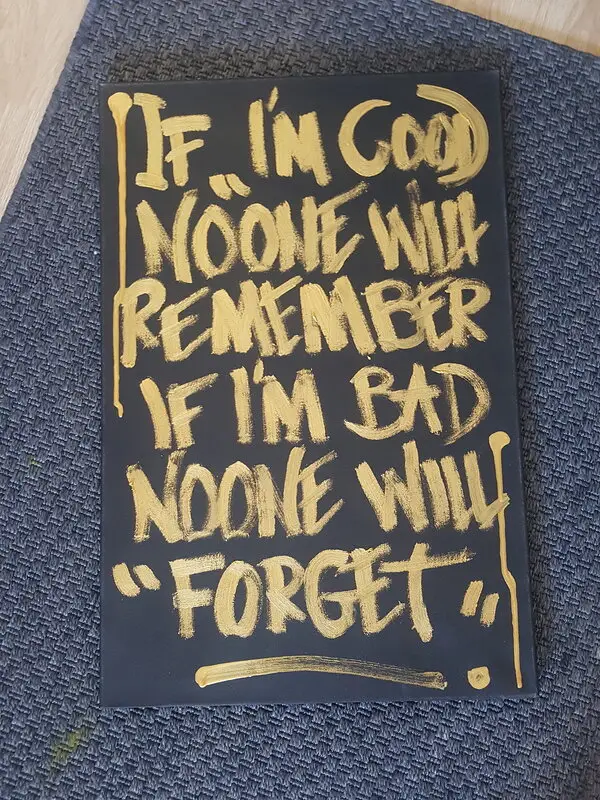 IF I'M GOOD
"NOONE WILL
REMEMBER
IF I'M BAD
NOONE WILL
"FORGET"